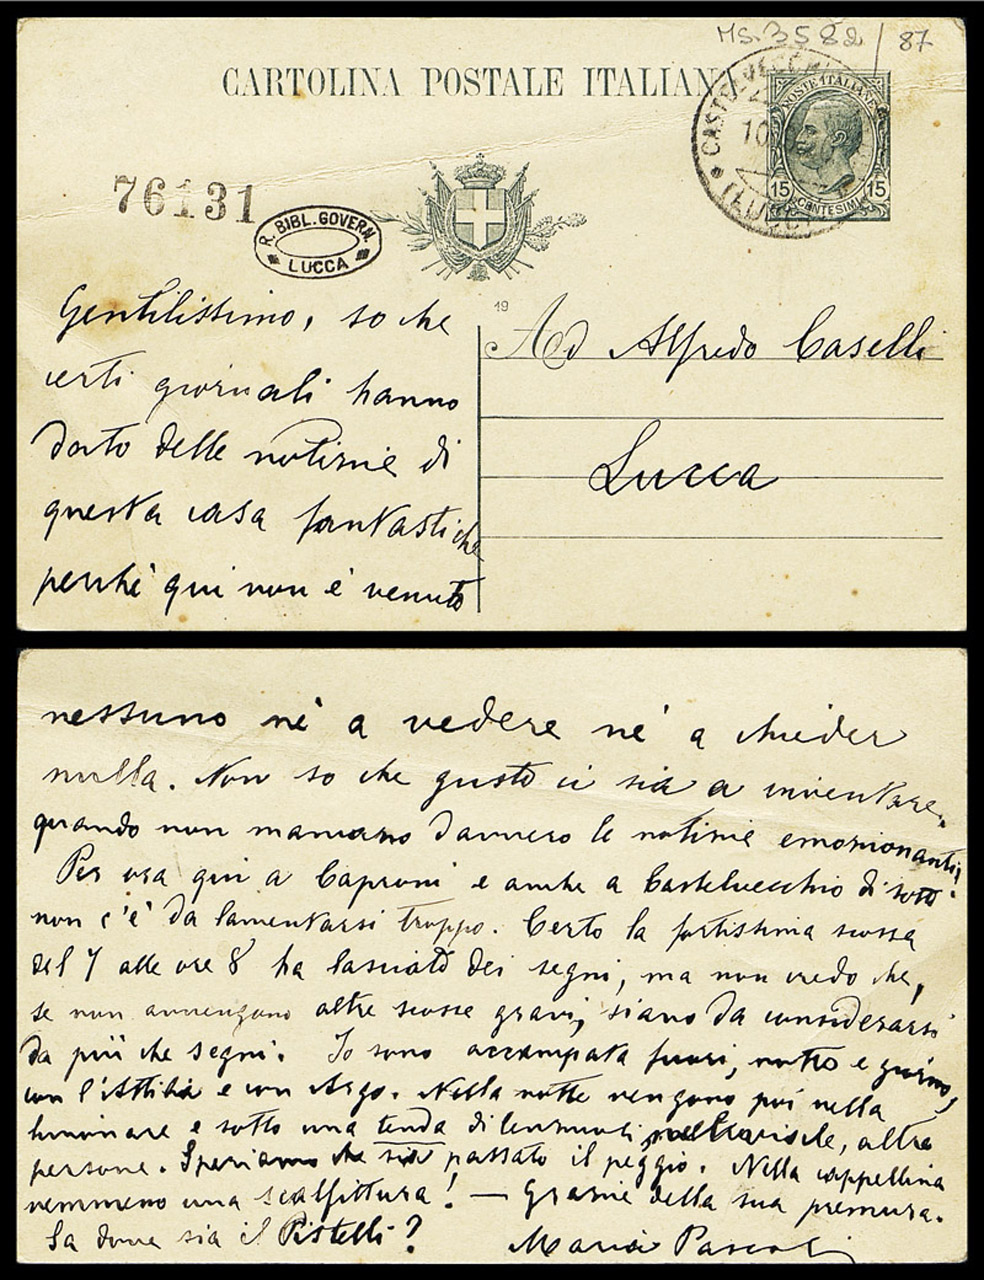 MS. 3582 / 87
CARTOLINA POSTALE ITALIANA
POSTE ITALIANE
15 CENTESIMI 15
10
76131
R. BIBL. GOVERN.
LUCCA
19
Gentilissimo, so che
certi giornali hanno
dato delle notizie di
questa casa fantastiche
perchè qui non è venuto
Ad Alfredo Caselli
Lucca
nessuno nè a vedere nè a chieder
nulla. Non so che gusto ci sia a inventare,
quando non mancano davvero le notizie emozionanti!
Per ora qui a Caproni e anche a Castelvecchio di sotto
non c'è da lamentarsi troppo. Certo la fortissima scossa
del 7 alle ore 8 ha lasciato dei segni, ma non credo che,
se non avvengono altre scosse gravi, siano da considerarsi
da più che segni. Io sono accampata fuori, notte e giorno,
con l'Attilia e con Argo. Nella notte vengono poi nella
e sotto una tenda di altre
persone. Speriamo che sia passato il peggio. Nella cappellina
nemmeno una scalfittura! — Grazie della sua premura.
Sa dove sia il Pistelli?
Maria Pascoli